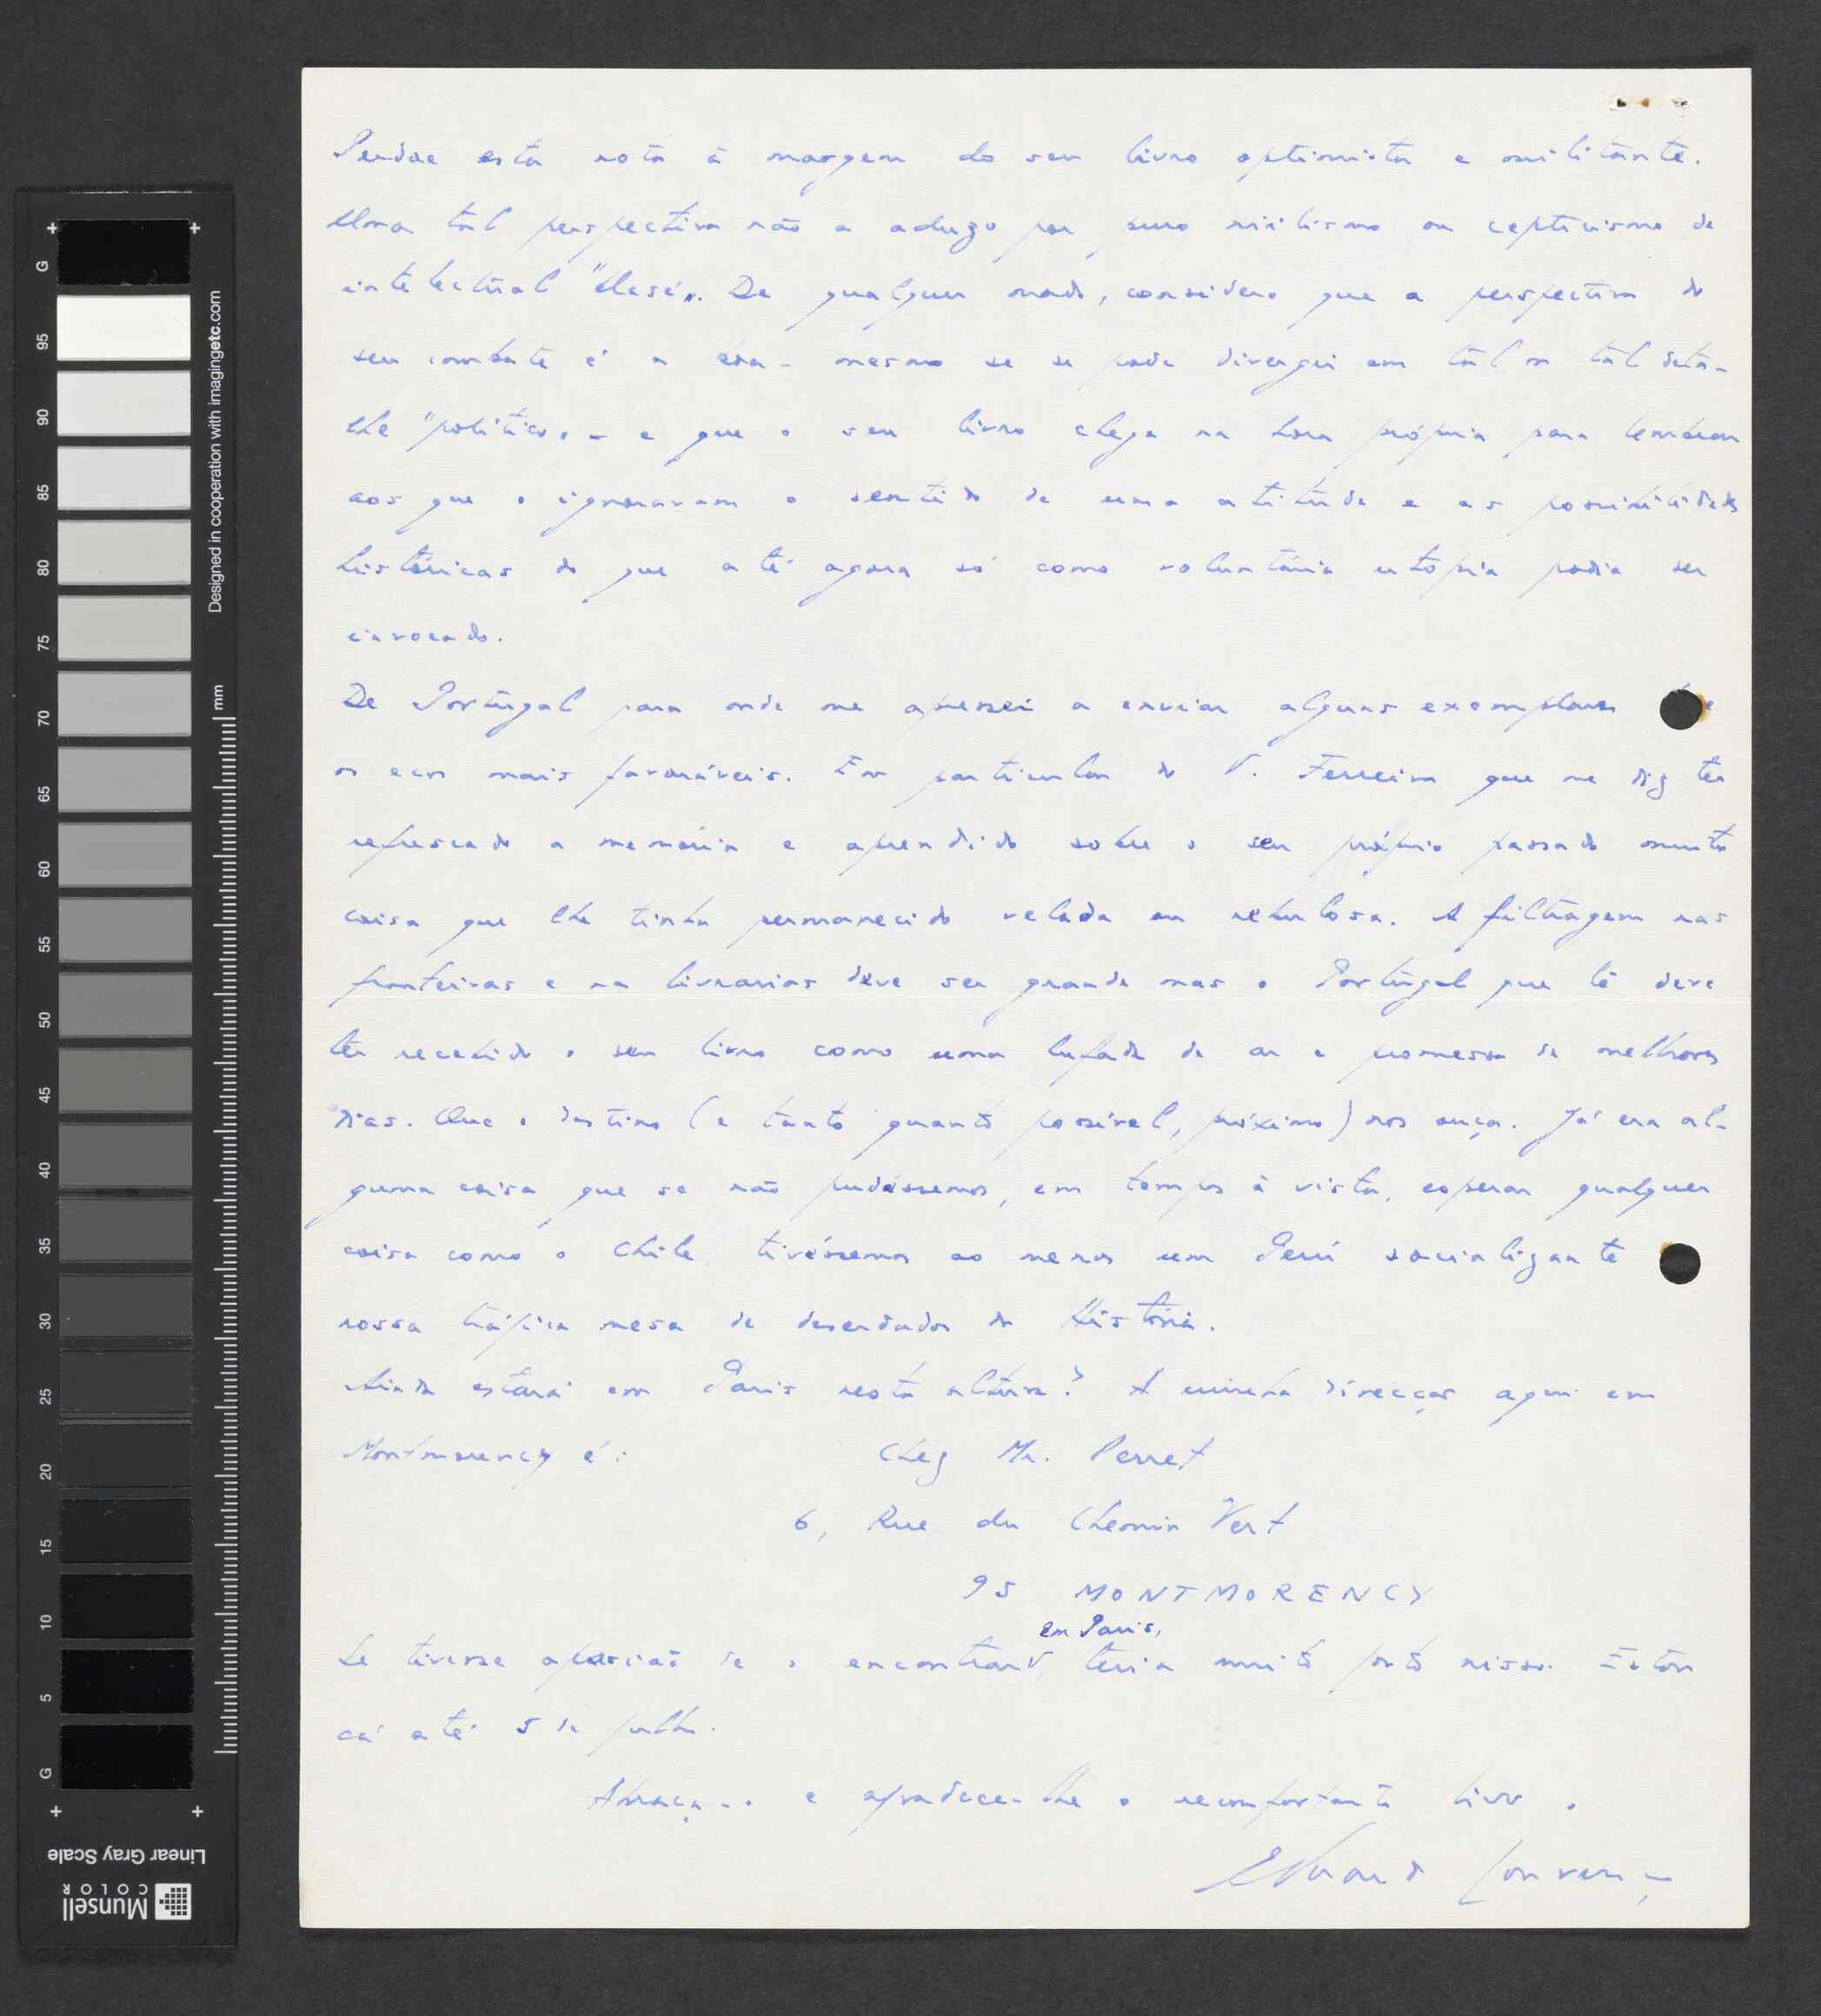 Perdoe esta nota à margem do seu livro optimista e militante.
Uma tal perspectiva não a aduzo por puro niilismo ou cepticismo de
intelectual "blasé". De qualquer modo, considero que a perspectiva do
seu combate é a boa - mesmo se se pode divergir em tal ou tal deta-
lhe "político" - e que o seu livro chega na hora própria para lembrar
aos que o ignoravam o sentido de uma atitude e as possibilidades
históricas do que até agora só como voluntária utopia podia ser
invocado.
De Portugal para onde me apressei a enviar alguns exemplares
os ecos mais favoráveis. Em particular do V. Ferreira que me diz ter
refrescado a memória e aprendido sobre o seu próprio passado muita
coisa que lhe tinha permanecido velada ou nebulosa. A filtragem nas
fronteiras e na livrarias deve ser grande mas o Portugal que lê deve
ter recebido o seu livro como uma lufada de ar e promessa de melhores
dias. Que o destino (e tanto quanto possível, próximo) nos ouça. Já era al-
guma coisa que se não pudéssemos, em tempos à vista, esperar qualquer
coisa como o Chile, tivéssemos ao menos um Perú socializante
nossa trágica mesa de deserdados da História.
Ainda estará em Paris nesta altura? A minha direcção aqui em
Montmorency é: Chez Mr. Perret
6, Rue du Chemin Vert
95 MONTMORENCY
em Paris,
Se tivesse ocasião de o encontrar, teria muito gosto nisso. Estou
cá até 5 de julho.
Abraça-o e agradece-lhe o reconfortante livro o
Eduardo Lourenço
Designed in cooperation with imagingetc.com
mm
G
95
90
85
80
75
70
65
60
55
50
45
40
35
30
25
20
15
10
5
G
Linear Gray Scale
Munsell
COLOR